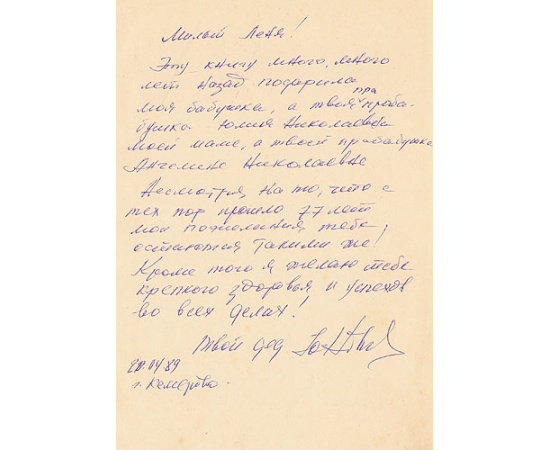 Милый Лёня!
Эту книгу много, много
лет назад подарила
моя бабушка, а твоя прапраба-
бушка Юлия Николаевна
моей маме, а твоей прабабушке
Ангелине Николаевне
Несмотря, на то, что с
тех пор прошло 77 лет
мои пожелания тебе
остаются такими же!
Кроме того я желаю тебе
крепкого здоровья и успехов
во всех делах!
Твой дед
04 89
г. Кемерово.